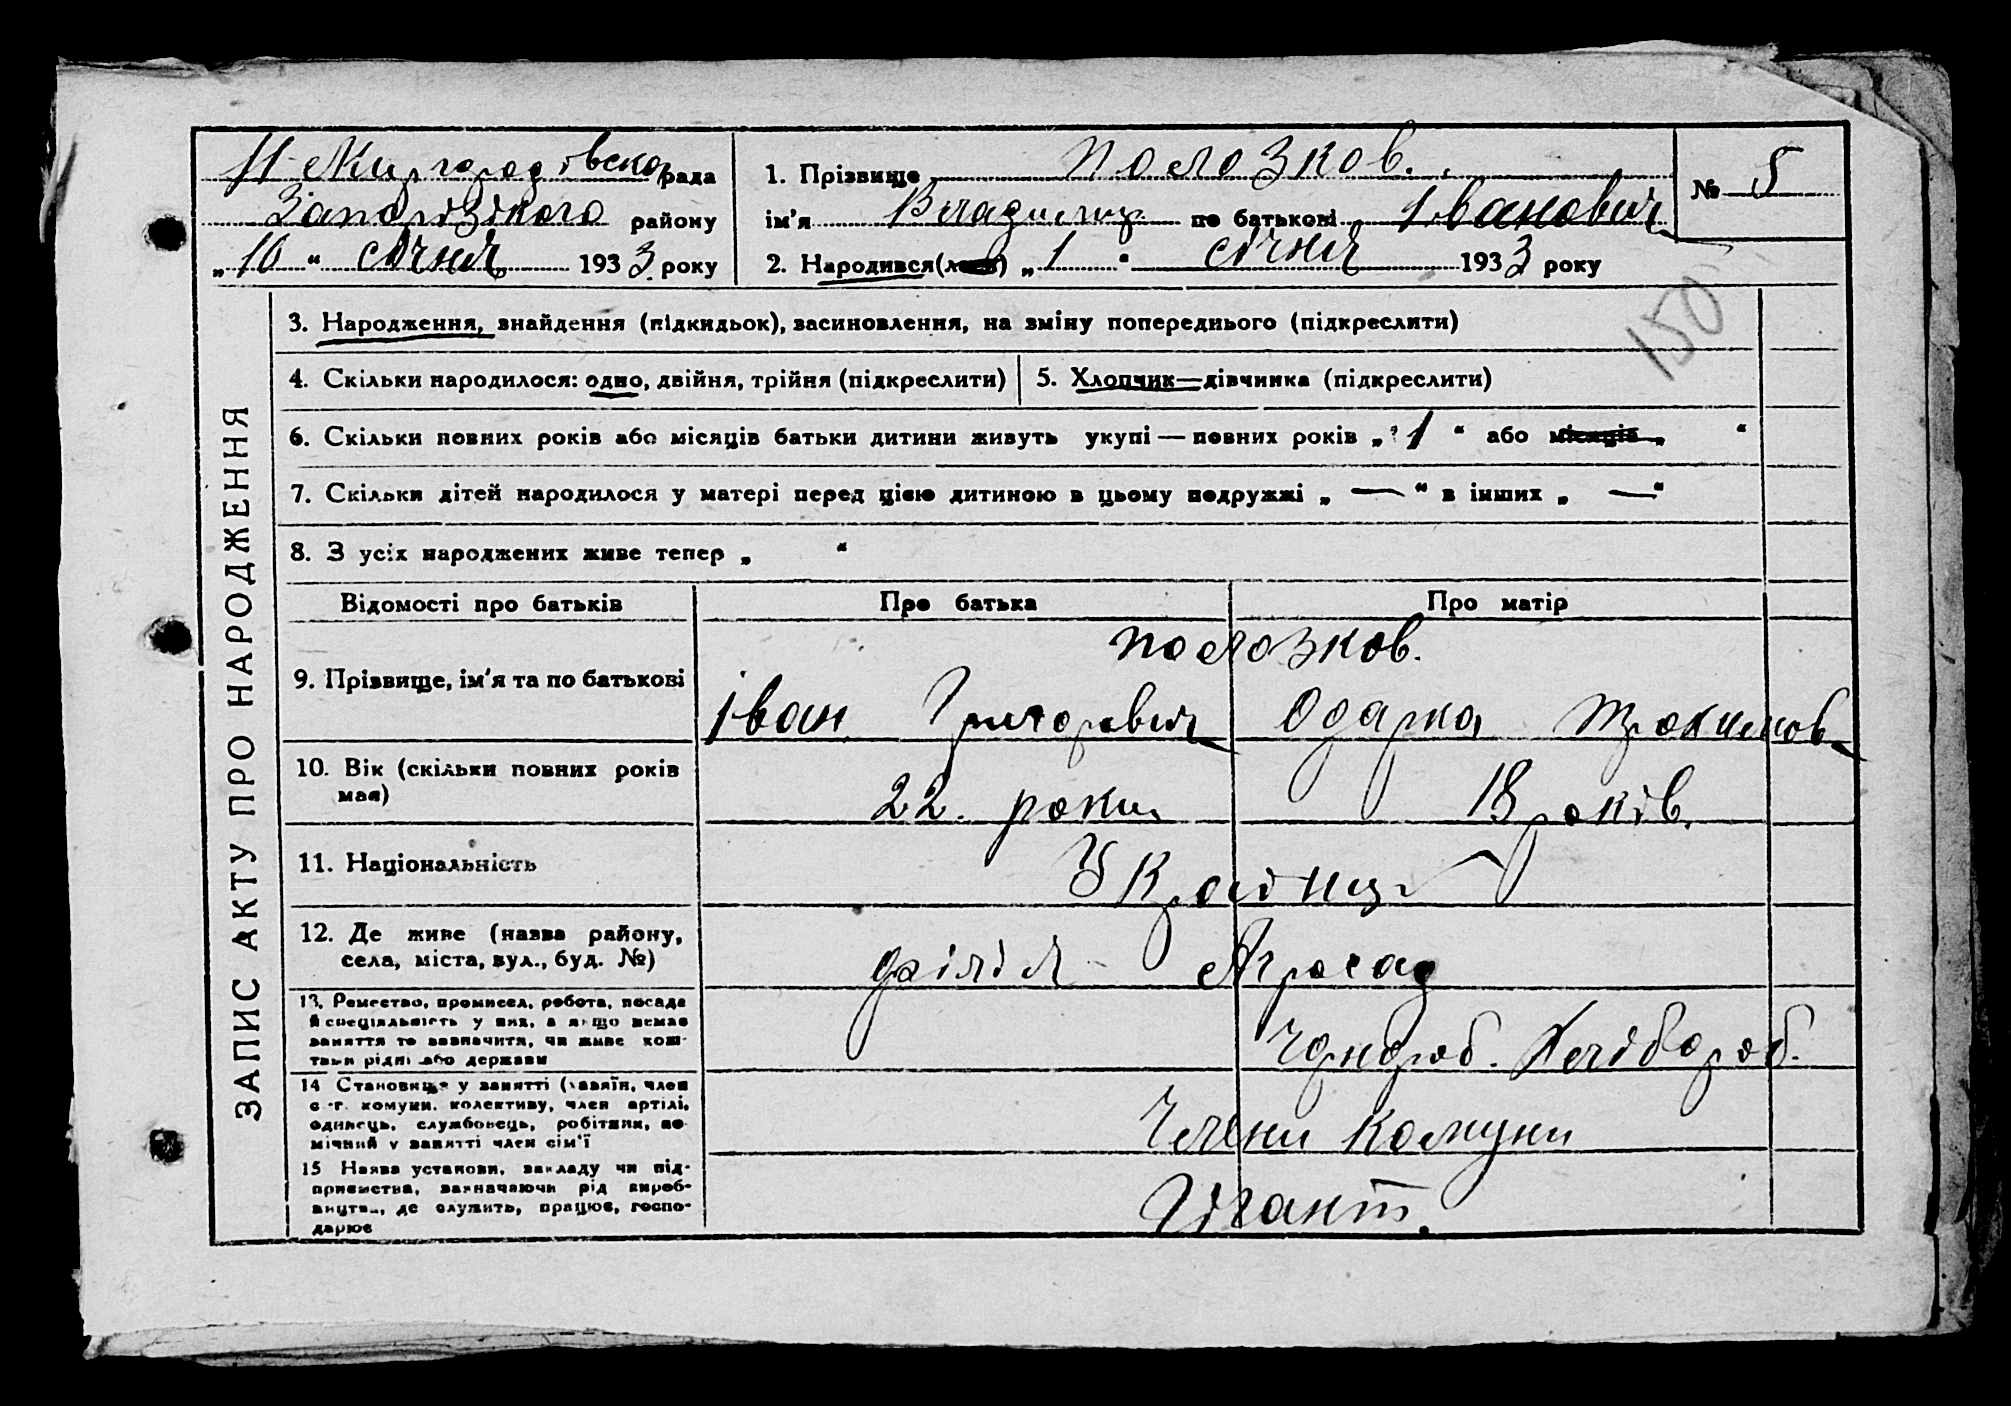 Н-Миргородівська рада
Запорізького району
„10“ січня 1933 року
1. Прізвище Полозков.
ім'я Владимир по батькові Іванович
2. Народився(лась) „1“ січня 1933 року
№ 5
150
ЗАПИС АКТУ ПРО НАРОДЖЕННЯ
3. Народження, знайдення (підкидьок), засиновлення, на зміну попереднього (підкреслити)
4. Скільки народилося: одно, двійня, трійня (підкреслити)
5. Хлопчик—дівчинка (підкреслити)
6. Скільки повних років або місяців батьки дитини живуть укупі — повних років „1“ або місяців „ “
7. Скільки дітей народилося у матері перед цією дитиною в цьому подружжі „ — “ в інших „ — “
8. З усіх народжених живе тепер „ “
Відомості про батьків
Про батька
Про матір
9. Прізвище, ім'я та по батькові
Полозков.
Іван Григорович
Одарка
10. Вік (скільки повних років має)
22. роки
18 років.
11. Національність
Українці
12. Де живе (назва району, села, міста, вул., буд. №)
філія Агросад
13. Ремество, промисел, робота, посада й спеціяльність у них, а якщо немає заняття то зазначити, чи живе коштом рідні або держави
Чорнороб. Хлібороб.
14 Становище у занятті (хазяїн, член с.-г. комуни, колективу, член артілі, одинець, службовець, робітник, помічний у занятті член сім'ї
Члени комуни
15 Назва установи, закладу чи підприємства, зазначаючи рід виробництва, де служить, працює, господарює
Гігант.